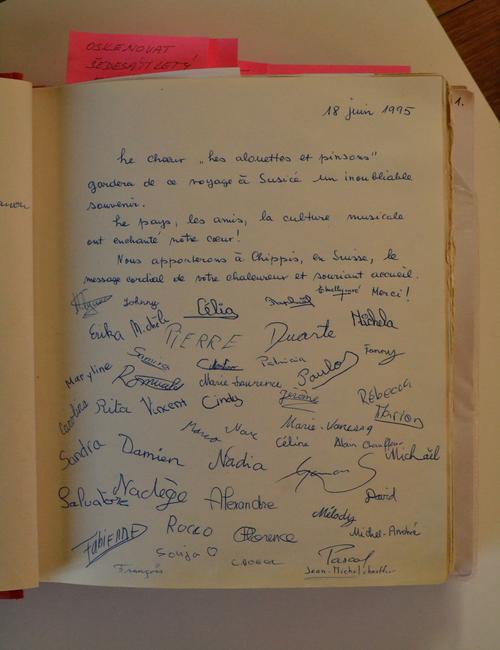 OSKENOVAT
ŠEDESÁTILETÝ
1.
18 juin 1995
Le chœur „Les alouettes et pinsons"
gardera de ce voyage à Susicé un inoubliable
souvenir.
Le pays, les amis, la culture musicale
ont enchanté nôtre cœur!
Nous apporterons à Chippis, en Suisse, le
message cordial de votre chaleureux et souriant accueil.
Merci!
Johnny Célia Raphaël
Erika Michèle PIERRE Duarte Michela
Maryline Samira Patricia Fanny
Romuald Marie-Laurence Paulo
Caroline Rita Vincent Cindy Jérôme Rébecca
Marion
Marco Marc Marie-Vanessa
Sandra Damien Nadia Céline Alain Chauffeur Michaël
Salvatore Nadège Alexandre David
Mélody
FABIENNE Rocco Florence Michel-André
Sonja Pascal
François Jean-Michel